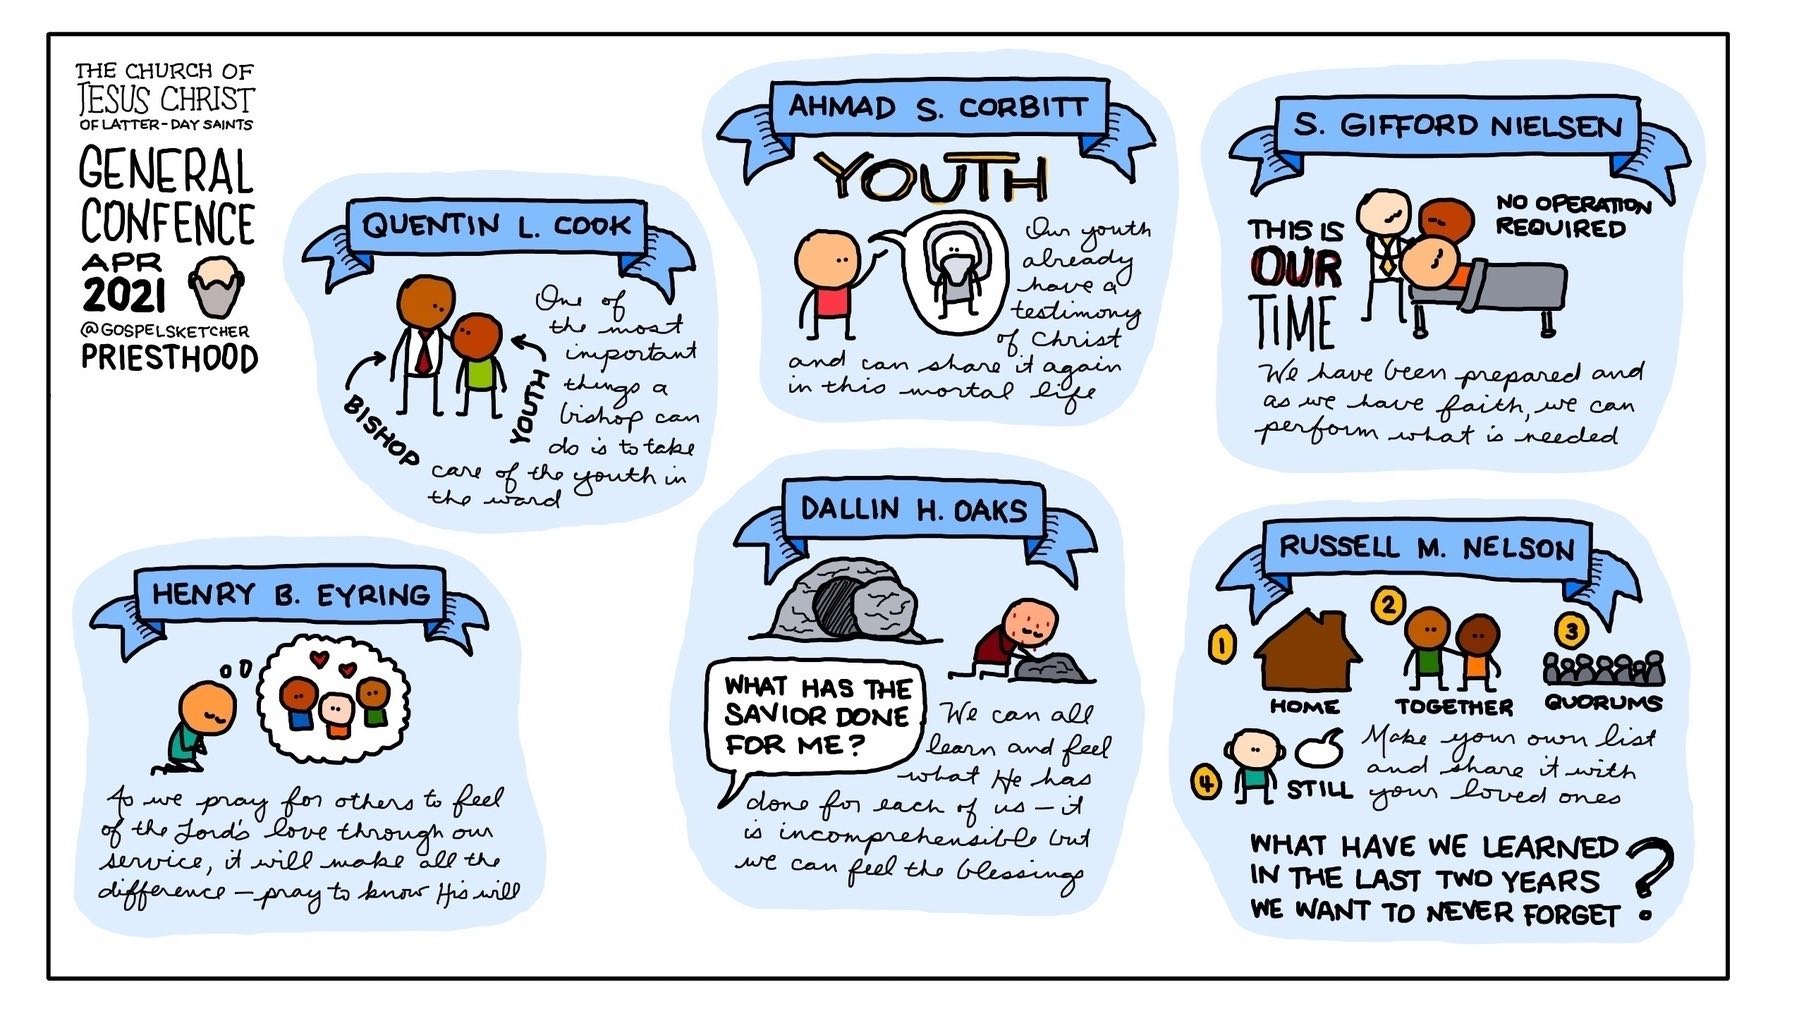 THE CHURCH OF
JESUS CHRIST
OF LATTER-DAY SAINTS
GENERAL
CONFENCE
APR
2021
@GOSPELSKETCHER
PRIESTHOOD
QUENTIN L. COOK
BISHOP
YOUTH
One of
the most
important
things a
bishop can
do is to take
care of the youth in
the ward
AHMAD S. CORBITT
YOUTH
Our youth
already
have a
testimony
of Christ
and can share it again
in this mortal life
S. GIFFORD NIELSEN
THIS IS
OUR
TIME
NO OPERATION
REQUIRED
We have been prepared and
as we have faith, we can
perform what is needed
HENRY B. EYRING
As we pray for others to feel
of the Lord's love through our
service, it will make all the
difference – pray to know His will
DALLIN H. OAKS
WHAT HAS THE
SAVIOR DONE
FOR ME?
We can all
learn and feel
what He has
done for each of us – it
is incomprehensible but
we can feel the blessings
RUSSELL M. NELSON
1
HOME
2
TOGETHER
3
QUORUMS
4
STILL
Make your own list
and share it with
your loved ones
WHAT HAVE WE LEARNED
IN THE LAST TWO YEARS
WE WANT TO NEVER FORGET ?